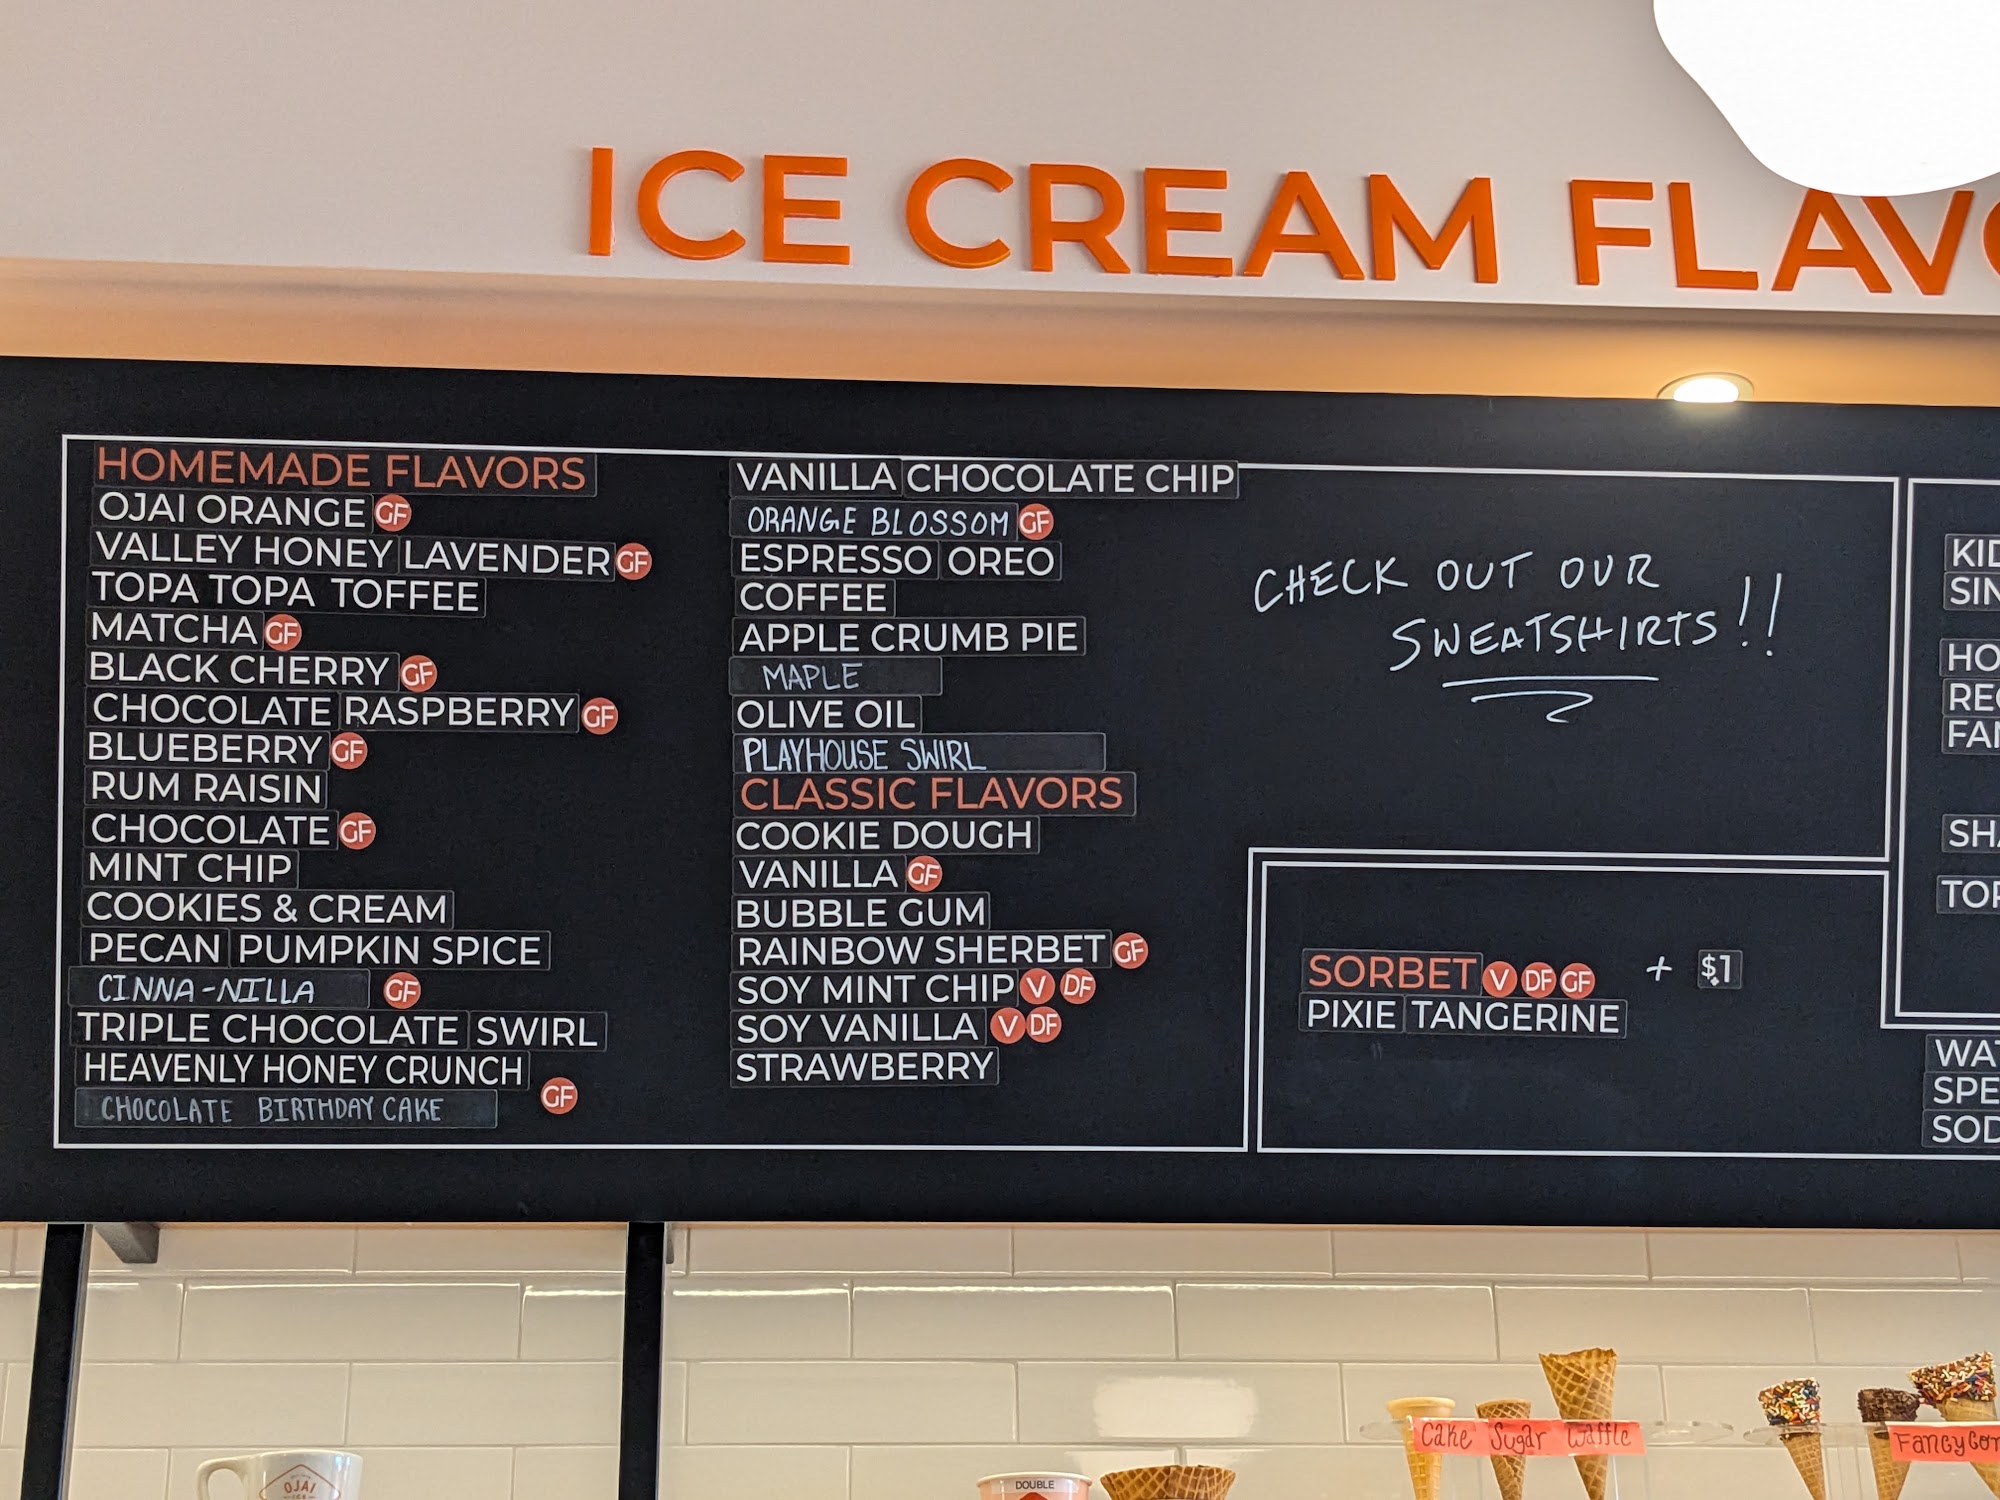 ICE CREAM
HOMEMADE FLAVORS
OJAI ORANGE GF
VALLEY HONEY LAVENDER GF
TOPA TOPA TOFFEE
MATCHA GF
BLACK CHERRY GF
CHOCOLATE RASPBERRY GF
BLUEBERRY GF
RUM RAISIN
CHOCOLATE GF
MINT CHIP
COOKIES & CREAM
PECAN PUMPKIN SPICE
CINNA-NILLA GF
TRIPLE CHOCOLATE SWIRL
HEAVENLY HONEY CRUNCH
CHOCOLATE BIRTHDAY CAKE GF
VANILLA CHOCOLATE CHIP
ORANGE BLOSSOM GF
ESPRESSO OREO
COFFEE
APPLE CRUMB PIE
MAPLE
OLIVE OIL
PLAYHOUSE SWIRL
CLASSIC FLAVORS
COOKIE DOUGH
VANILLA GF
BUBBLE GUM
RAINBOW SHERBET GF
SOY MINT CHIP V DF
SOY VANILLA V DF
STRAWBERRY
CHECK OUT OUR
SWEATSHIRTS!!
SORBET V DF GF + $1
PIXIE TANGERINE
Cake Sugar Waffle
Fancy
OJAI
DOUBLE